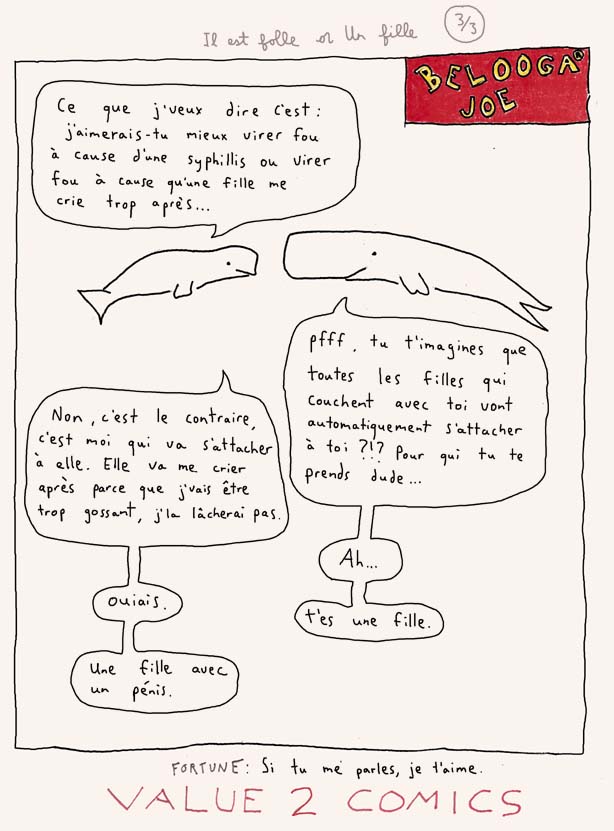 Il est folle or Un fille 3/3
BELOOGA®
JOE
Ce que j'veux dire c'est :
j'aimerais-tu mieux virer fou
à cause d'une syphillis ou virer
fou à cause qu'une fille me
crie trop après...
pfff, tu t'imagines que
toutes les filles qui
couchent avec toi vont
automatiquement s'attacher
à toi ?!? Pour qui tu te
prends dude...
Non, c'est le contraire,
c'est moi qui va s'attacher
à elle. Elle va me crier
après parce que j'vais être
trop gossant, j'la lâcherai pas.
Ah...
t'es une fille.
ouiais.
Une fille avec
un pénis.
FORTUNE: Si tu me parles, je t'aime.
VALUE 2 COMICS